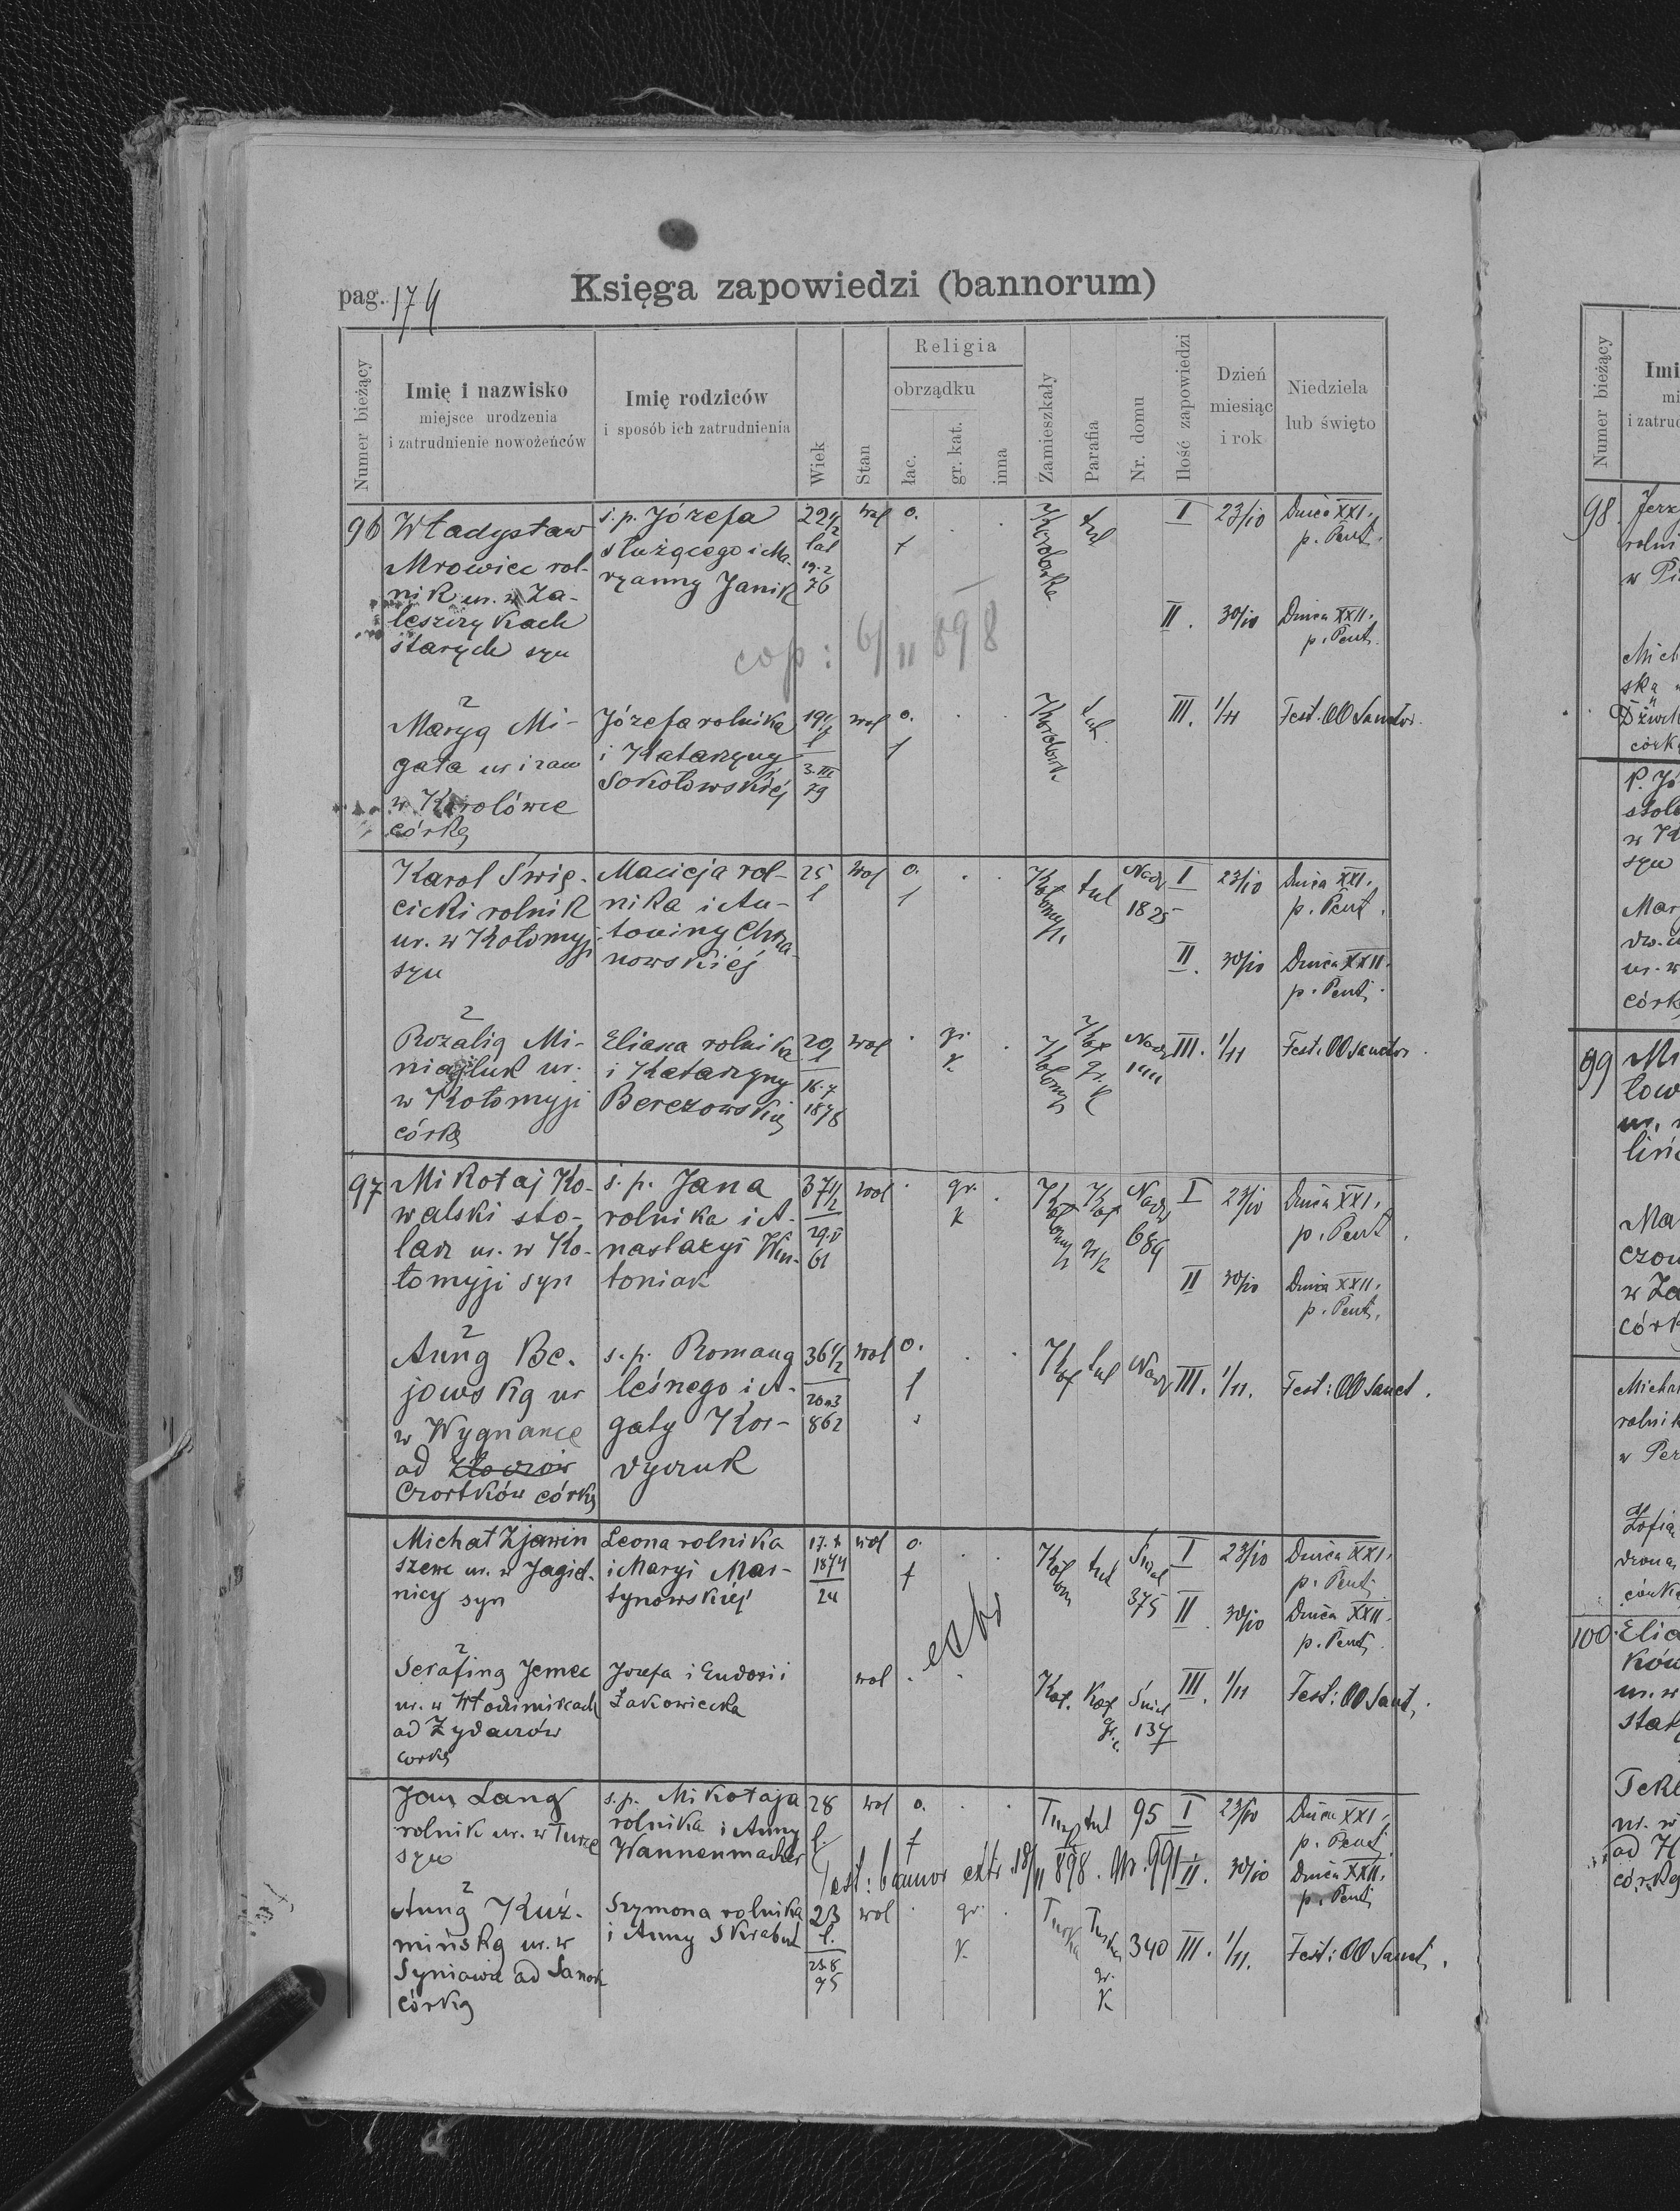 pag. 174
Księga zapowiedzi (bannorum)
Numer bieżący
Imię i nazwisko
miejsce urodzenia
i zatrudnienie nowożeńców
Imię rodziców
i sposób ich zatrudnienia
Wiek
Stan
Religia
obrządku
łac.
gr. kat.
inna
Zamieszkały
Parafia
Nr. domu
Ilość zapowiedzi
Dzień
miesiąc
i rok
Niedziela
lub święto
96
Władysław
Mrowiec rol-
nik ur. w Za-
leszczykach
starych syn
s. p. Józefa
służącego i Ma-
ryanny Janik
22 1/2
lat
19.2
76
wol
o.
ł
Karolówka
tut
I 23/10 Dnica XXI.
p. Pent.
II. 30/10 Dnica XXII.
p. Pent.
cop: 6/11 898
z
Maryą Mi-
gała ur i zam
w Karolówce
córką
Józefa rolnika
i Katarzyny
Sokołowskiej
19 1/2
l
3.III
79
wol
o.
ł
Karolówka
tut.
III. 1/11 Fest. OO Sanctor.
Karol Świę-
cicki rolnik
ur. w Kołomyji
syn
Macieja rol-
nika i An-
toniny Chrza-
nowskiej
25
l
wol
o.
ł
Kołomyja
tut
Nadw
1825
I 23/10 Dnica XXI.
p. Pent.
II. 30/10 Dnica XXII.
p. Pent.
z
Rozalią Mi-
ur.
w Kołomyji
córką
Eliasza rolnika
i Katarzyny
Berezowskiej
20
l
16.7
1878
wol
gr.
k
Kołomyja
Koł
gr. k
Nadw
III. 1/11 Fest. OO Sanctor.
97
Mikołaj Ko-
walski sto-
larz ur. w Ko-
łomyji syn
s. p. Jana
rolnika i A-
nastazyi Win-
toniak
37 1/2
29.V
61
wol
gr.
k
Kołomyja
Koł
gr k
Nadw
689
I 23/10 Dnica XXI.
p. Pent.
II 30/10 Dnica XXII.
p. Pent.
z
Anną Be-
jowską ur
w Wygnance
ad Złoczów
Czortków córką
s. p. Romana
leśnego i A-
gaty Kor-
dyczuk
36 1/2
862
wol
o.
ł
Koł
tut
Nadw
III. 1/11. Fest: OO Sanct.
Michał Zjawin
szewc ur. w Jagiel-
nicy syn
Leona rolnika
i Maryi Mar-
tynowskiej
17.X
1874
24
wol
o.
ł
Kołom
tut
Śniat
375
I 23/10 Dnica XXI.
p. Pent.
II 30/10 Dnica XXII.
p. Pent.
extr
z
Serafiną Jemec
ur. w Włodzimircach
ad Żydaczów
córką
Józefa i Eudoxii
Żakowiecka
wol
Koł.
Koł
gr. c.
Śniat
137
III. 1/11 Fest: OO Sanct.
Jan Lang
rolnik ur. w Turce
syn
s. p. Mikołaja
rolnika i Anny
Wannenmacher
28
l.
wol
o.
ł
tut
95
I 23/10 Dnica XXI.
p. Pent.
Test: bannor extr 18/11 898. Nr. 991
II. 30/10 Dnica XXII.
p. Pent.
z
Anną Kuź-
mińską ur. w
Syniawie ad Sanok
córką
Szymona rolnika
i Anny Skrabut
23
l.
25.8
95
wol
gr.
k.
Turka
Turka
gr.
k
340
III. 1/11. Fest: OO Sanct.
Numer bieżący
98.
99
100.